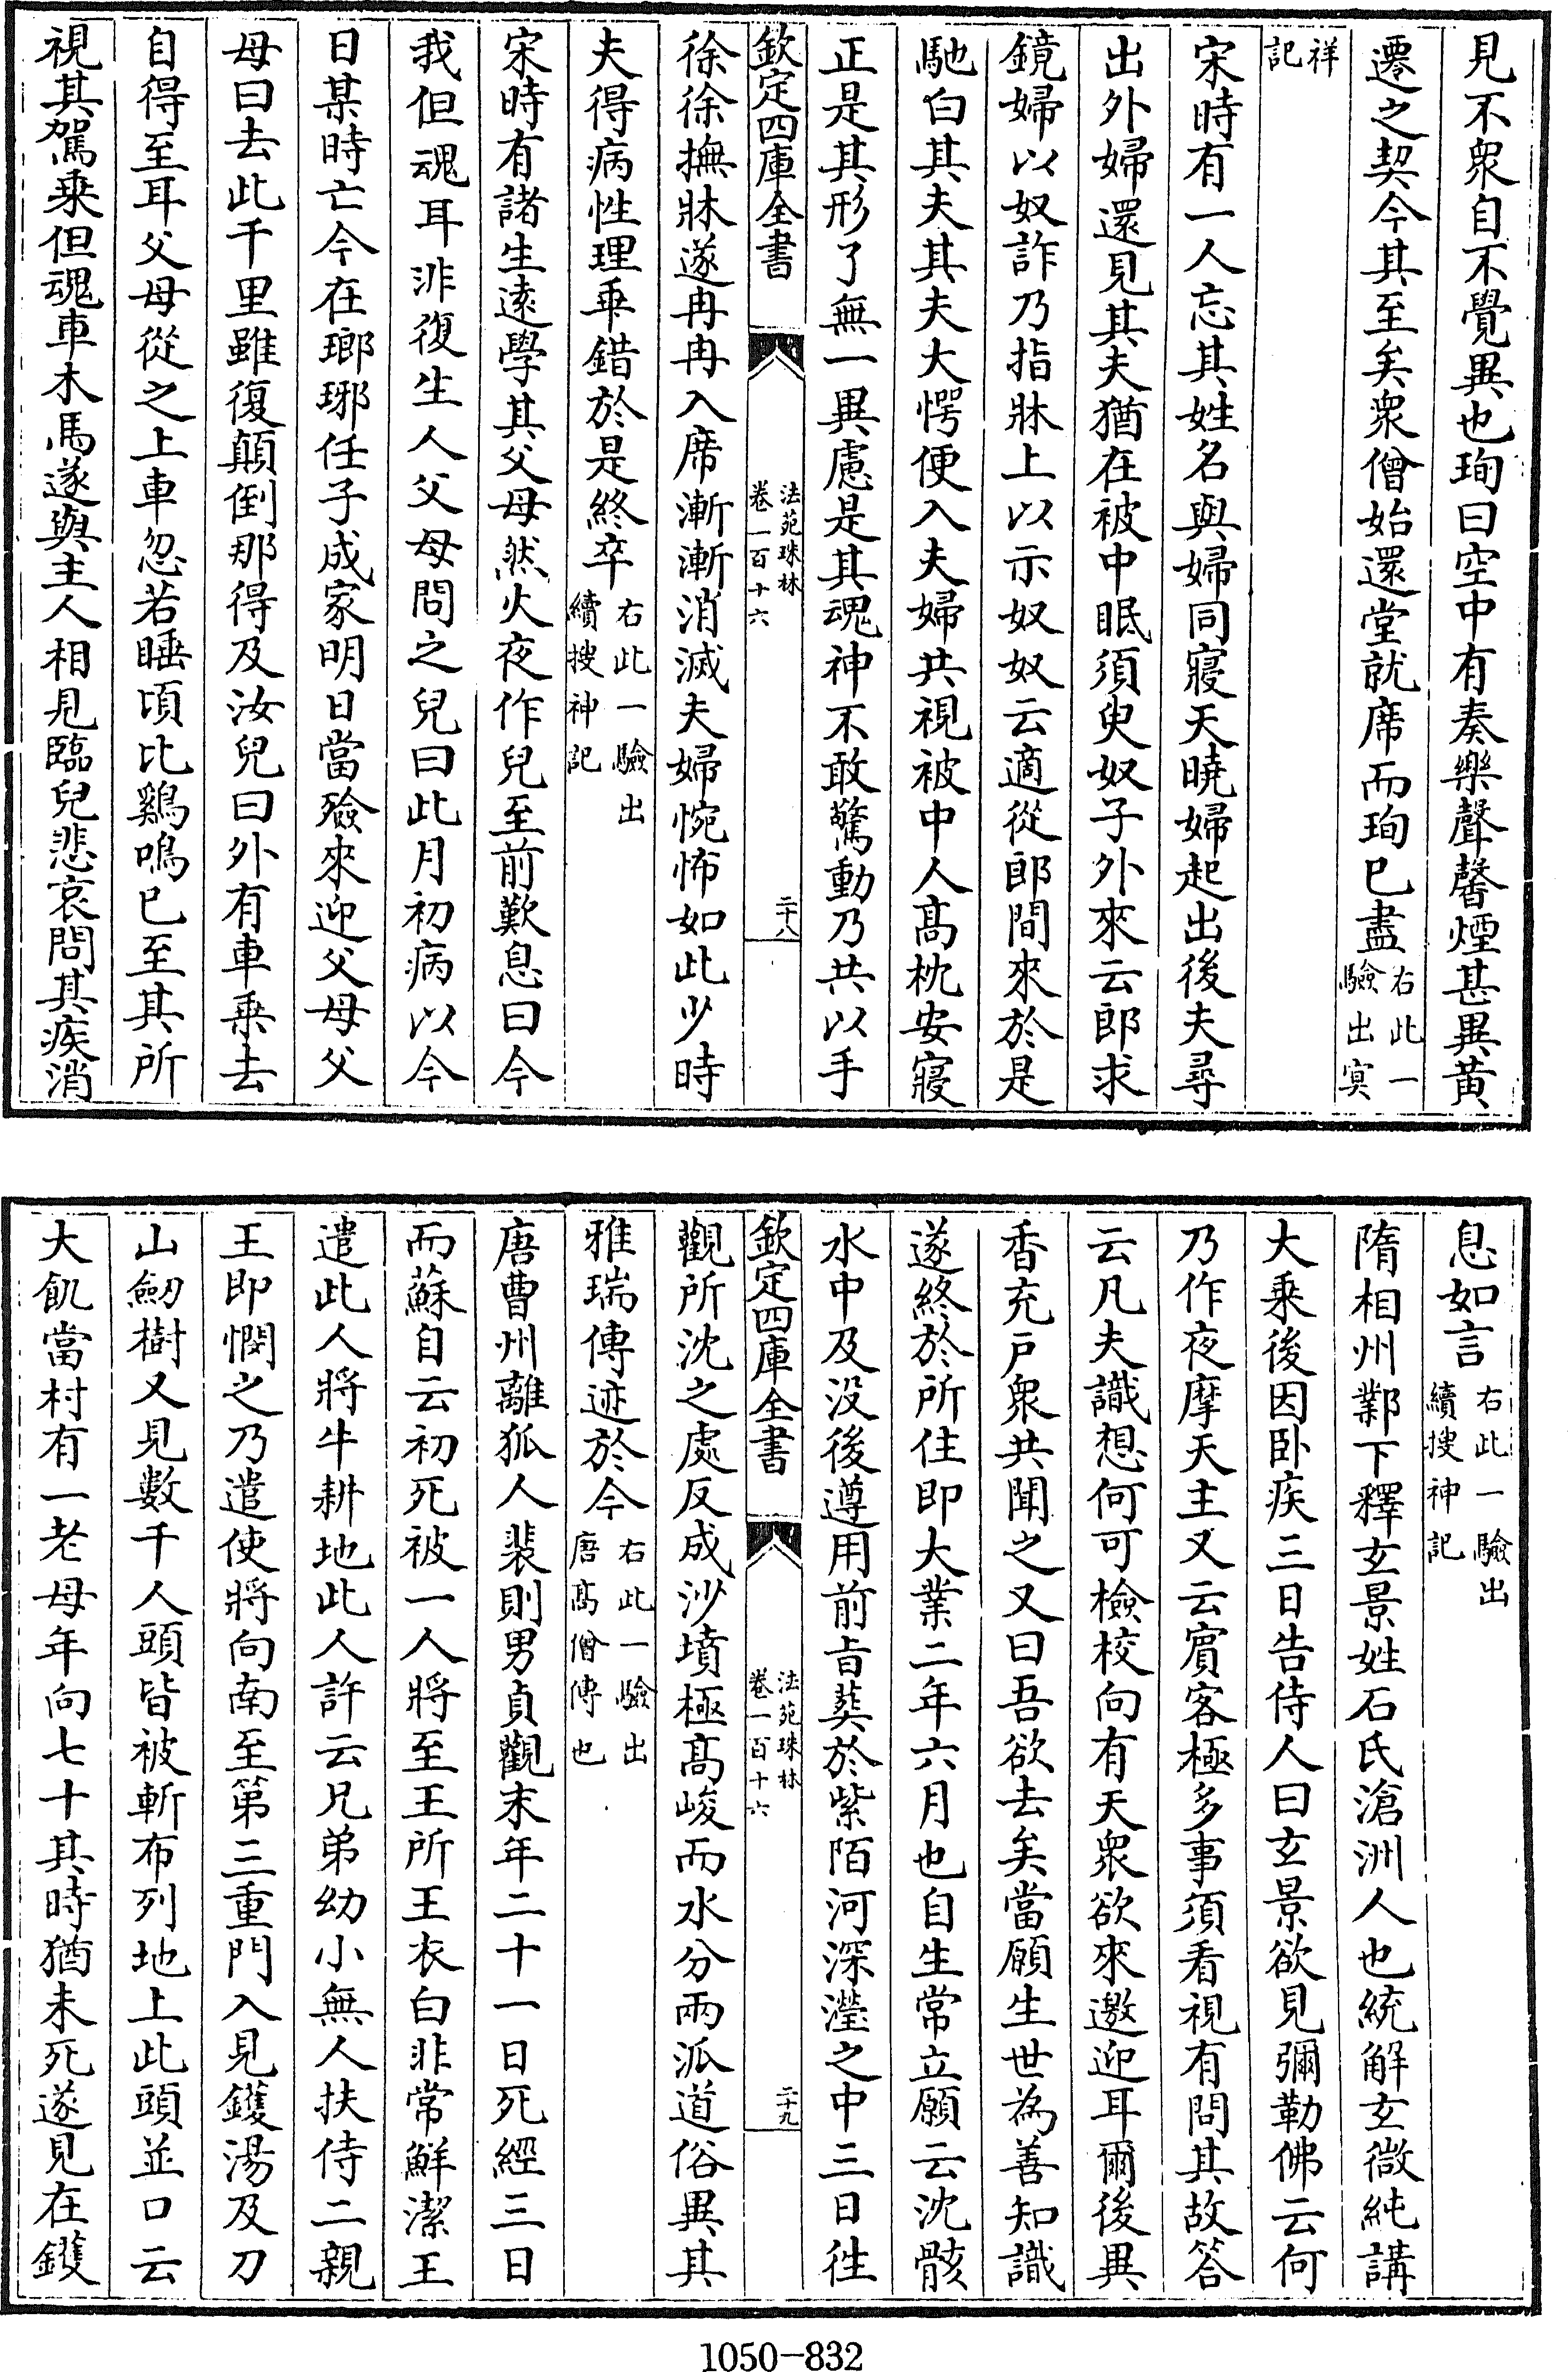 見不衆自不覺異也珣曰空中有奏樂聲馨煙甚異黃
遷之契今其至矣衆僧始還堂就席而珣已盡右此一驗出冥
祥記
宋時有一人忘其姓名與婦同寢天曉婦起出後夫尋
出外婦還見其夫猶在被中眠須臾奴子外來云郎求
鏡婦以奴詐乃指牀上以示奴奴云適從郎間來於是
馳白其夫其夫大愕便入夫婦共視被中人髙枕安寢
正是其形了無一異慮是其魂神不敢驚動乃共以手
欽定四庫全書
法苑珠林
卷一百十六
二十八
徐徐撫牀遂冉冉入席漸漸消滅夫婦惋怖如此少時
夫得病性理乖錯於是終卒右此一驗出續搜神記
宋時有諸生逺學其父母然火夜作兒至前歎息曰今
我但魂耳非復生人父母問之兒曰此月初病以今
日某時亡今在瑯琊任子成家明日當殮來迎父母父
母曰去此千里雖復顛倒那得及汝兒曰外有車乗去
自得至耳父母從之上車忽若睡頃比鷄鳴已至其所
視其駕乗但魂車木馬遂與主人相見臨兒悲哀問其疾消
息如言右此一驗出續搜神記
隋相州鄴下釋玄景姓石氏滄洲人也統解玄微純講
大乗後因卧疾三日告侍人曰玄景欲見彌勒佛云何
乃作夜摩天主又云賓客極多事須看視有問其故答
云凡夫識想何可檢校向有天衆欲來邀迎耳爾後異
香充戸衆共聞之又曰吾欲去矣當願生世為善知識
遂終於所住即大業二年六月也自生常立願云沈骸
水中及沒後遵用前旨葬於紫陌河深瀅之中三日徃
欽定四庫全書
法苑珠林
卷一百十六
二十九
觀所沈之處反成沙墳極髙峻而水分兩派道俗異其
雅瑞傳迹於今右此一驗出唐髙僧傳也
唐曹州離狐人裴則男貞觀末年二十一日死經三日
而蘇自云初死被一人將至王所王衣白非常鮮潔王
遣此人將牛耕地此人許云兄弟幼小無人扶侍二親
王即憫之乃遣使將向南至第三重門入見鑊湯及刀
山劒樹又見數千人頭皆被斬布列地上此頭並口云
大飢當村有一老母年向七十其時猶未死遂見在鑊
1050-832